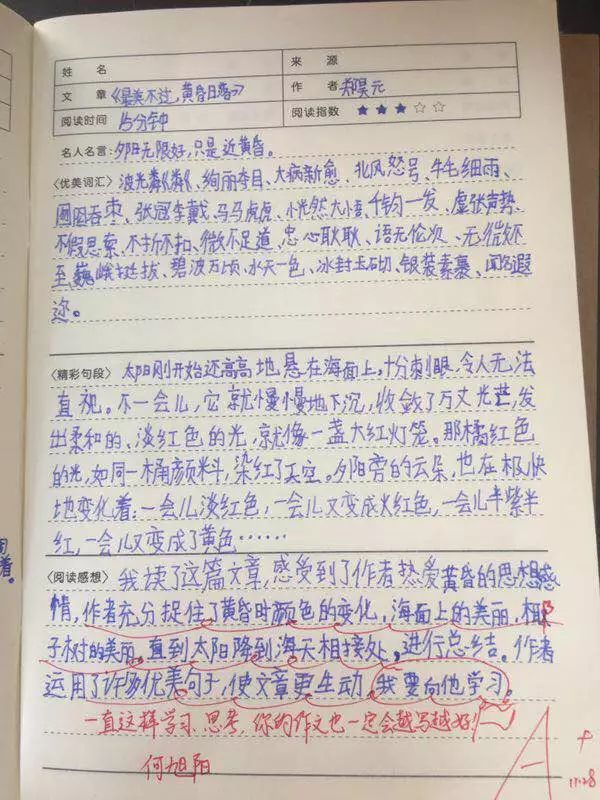 姓 名 来 源
文 章 《最美不过,黄昏日落》 作 者 郑昊元
阅读时间 15分钟 阅读指数 ★★★☆☆
名人名言:夕阳无限好,只是近黄昏。
〈优美词汇〉 波光粼粼、绚丽夺目、大病新愈、北风怒号、牛毛细雨、
囫囵吞枣、张冠李戴、马马虎虎、恍然大悟、千钧一发、虚张声势、
不假思索、不折不扣、微不足道、忠心耿耿、语无伦次、无微不
至、巍峨挺拔、碧波万顷、水天一色、冰封玉砌、银装素裹、闻名遐
迩。
〈精彩句段〉 太阳刚开始还高高地悬在海面上,十分刺眼,令人无法
直视。不一会儿,它就慢慢地下沉,收敛了万丈光芒,发
出柔和的、淡红色的光,就像一盏大红灯笼。那橘红色
的光,如同一桶颜料,染红了天空。夕阳旁的云朵,也在极快
地变化着:一会儿淡红色,一会儿又变成火红色,一会儿半紫半
红,一会儿又变成了黄色……
〈阅读感想〉 我读了这篇文章,感受到了作者热爱黄昏的思想感
情,作者充分捉住了黄昏时颜色的变化,海面上的美丽,椰
子树的美丽。直到太阳降到海天相接处,进行总结。作者
运用了许多优美句子,使文章更生动,我要向他学习。
一直这样学习、思考,你的作文也一定会越写越好!
何旭阳
A+
11.28